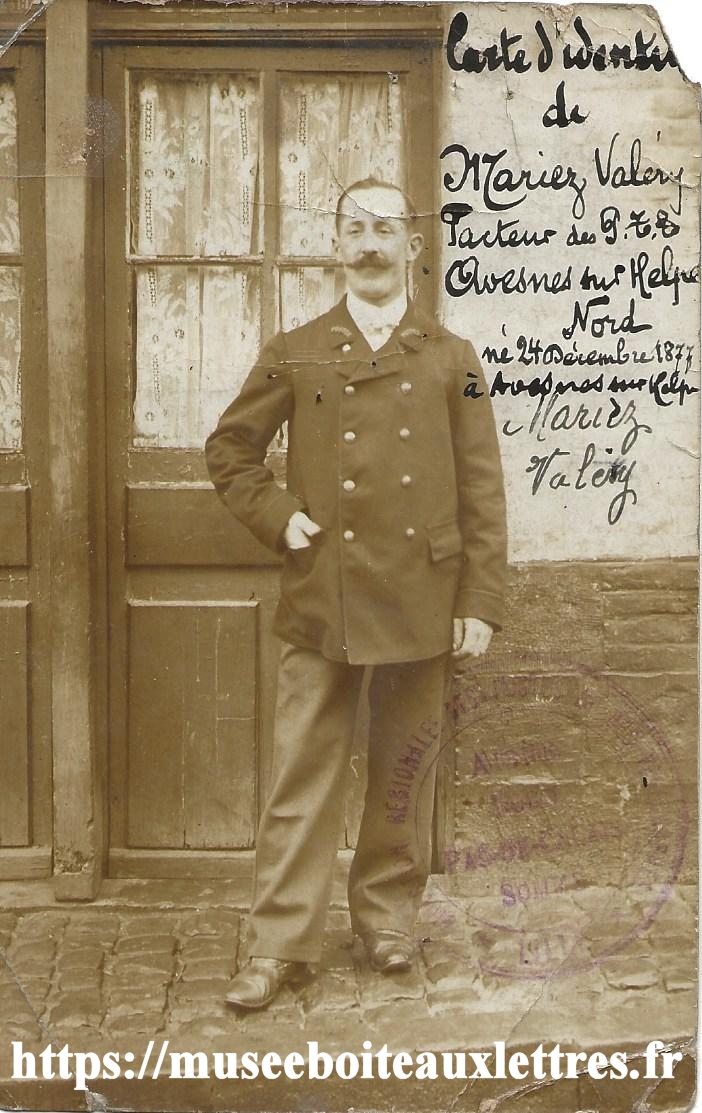 Carte d'identi
de
Mariez Valéry
Facteur des P.T.T
Avesnes sur Helpe
Nord
né 24 Décembre 1877
à Avesnes sur Helpe
Mariez
Valéry
REGIONALE DES POSTES
PAS-DE-CALAIS
SOMME
https://museeboiteauxlettres.fr